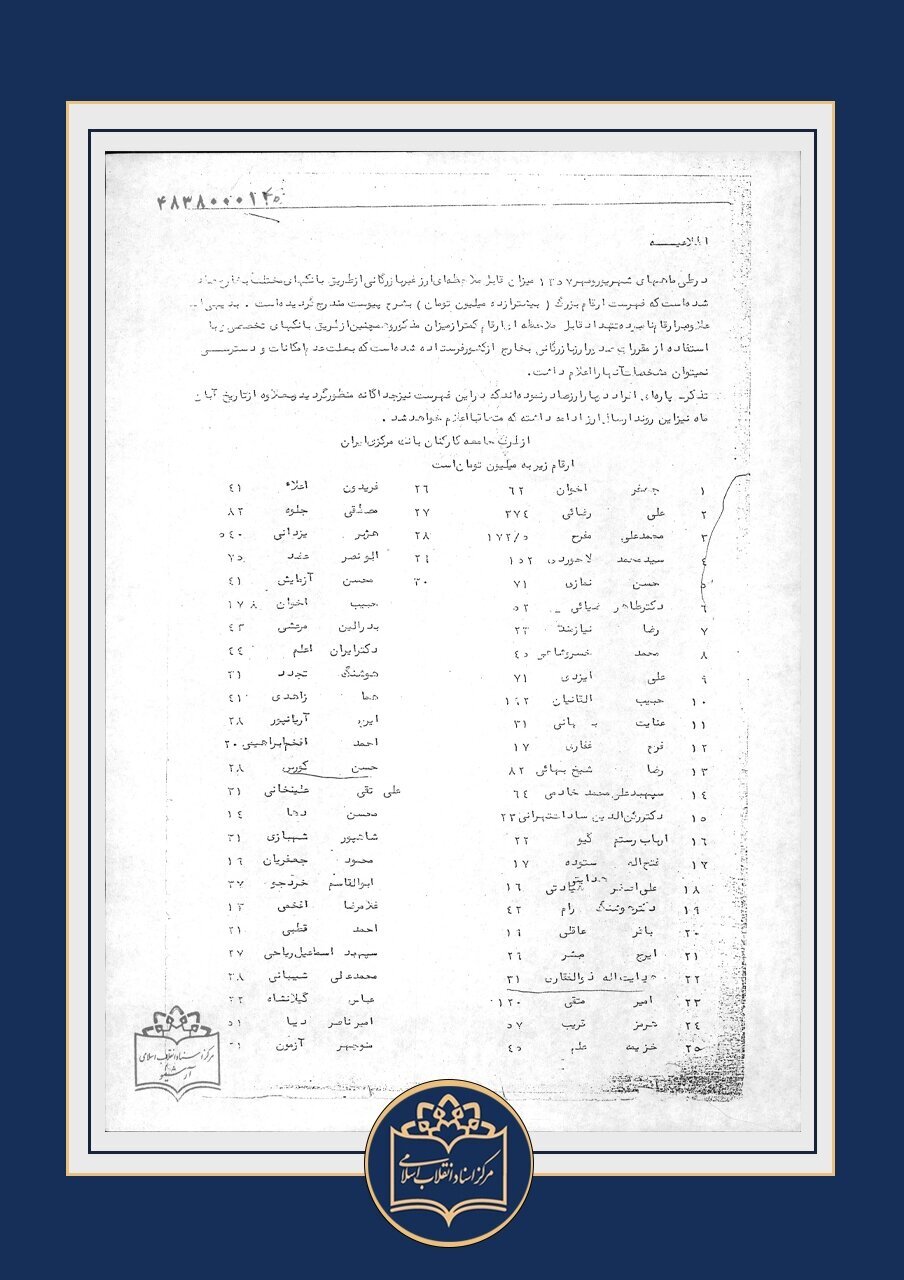 ۴۸۳۸۰۰۰۱۴۵
اطلاعیـــه
در طی ماههای شهریور و مهر ۱۳۵۷ میزان قابل ملاحظه‌ای ارز غیر بازرگانی از طریق بانکهای مختلف بخارج
شده است که فهرست ارقام بزرگ ( بیشتر از ده میلیون تومان ) بشرح پیوست مندرج گردیده است . بدیهی است
علاوه بر ارقام نامبرده تعداد قابل ملاحظه از ارقام کمتر از میزان مذکور و همچنین از طریق بانکهای تخصصی و با
استفاده از مقررات صدور ارز بازرگانی بخارج از کشور فرستاده شده است که بعلت عدم امکانات و دسترســی
نمیتوان مشخصات آنها را اعلام داشت .
تذکر ـ پاره‌ای افراد دو بار ارز صادر نموده‌اند که در این فهرست نیز جداگانه منظور گردید و بعلاوه از تاریخ آبان
ماه نیز این روند ارسال ارز ادامه داشته که متعاقبا اعلام خواهد شد .
از طرف جامعه کارکنان بانک مرکزی ایران
ارقام زیر به میلیون تومان است
۱ جعفر اخوان ۶۲
۲ علی رضائی ۳۷۴
۳ محمدعلی مفرح ۱۷۲/۵
۴ سید محمد لاجوردی ۱۵۲
۵ حسن نمازی ۷۱
۶ دکتر طاهر ضیائی ـ ۵۲
۷ رضا نیازمند ۲۳
۸ محمد خسروشاهی ۴۵
۹ علی ایزدی ۷۱
۱۰ حبیب القانیان
۱۱ عنایت بهبهانی ۳۱
۱۲ فرخ غفاری ۱۷
۱۳ رضا شیخ بهائی ۸۲
۱۴ سپهبد علی محمد خادمی ۶۴
۱۵ دکتر رکن الدین سادات تهرانی ۲۳
۱۶ ارباب رستم گیو ۲۲
۱۷ فتح اله ستوده ۱۷
۱۸ علی اصغر هدایتی ۱۶
۱۹ دکتر هوشنگ رام ۴۲
۲۰ باقر عاقلی ۱۹
۲۱ ایرج مبشر ۲۶
۲۲ هدایت اله ذوالفقاری ۳۱
۲۳ امیر متقی ۱۲۰
۲۴ هرمز قریب ۵۷
۲۵ خزیمه علم ۴۵
۲۶ فریدون اعلاء ۴۱
۲۷ مصطفی جلوه ۸۲
۲۸ هژبر یزدانی ۵۴۰
۲۹ ابو نصر عضد ۷۵
۳۰ محسن آزمایش ۴۱
حبیب اخوان
بدرالدین مرعشی ۴۳
دکتر ایران اعلم ۴۴
هوشنگ تجدد ۳۱
هما زاهدی ۴۱
آریانپور ۲۸
احمد افخم ابراهیمی ۲۰
حسن کورس ۲۸
علی نقی علیخانی ۳۱
محسن دها ۱۴
شاهپور شهبازی ۳۱
محمود جعفریان ۱۶
ابوالقاسم خردجو ۳۷
غلامرضا افخمی ۱۳
احمد قطبی ۲۱
سپهبد اسماعیل ریاحی ۲۷
محمد علی شیبانی ۳۸
عباس گیلانشاه ۲۲
امیر ناصر دیبا ۵۱
منوچهر آزمون ۲۱
مرکز اسناد انقلاب اسلامی
آرشیو
مرکز اسناد انقلاب اسلامی